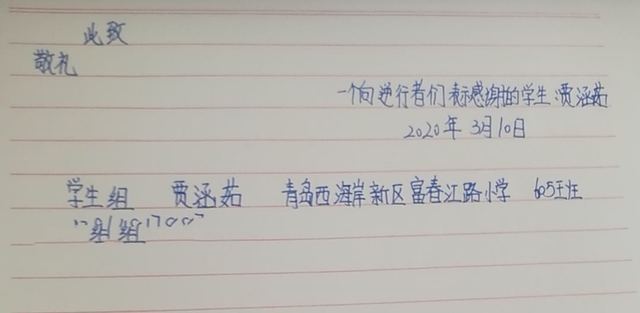 此致
敬礼
一个向逆行者们表示感谢的学生:贾涵茹
2020年3月10日
学生组 贾涵茹 青岛西海岸新区富春江路小学 605班